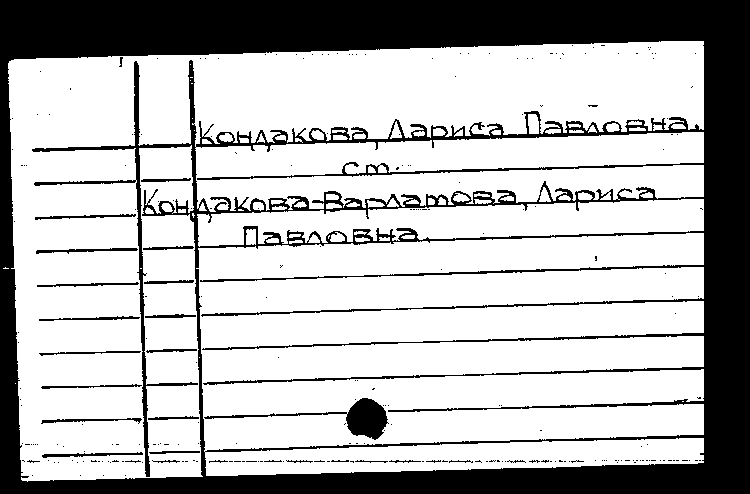 Кондакова, Лариса Павловна.
ст.
Кондакова-Варлатова, Лариса
Павловна.